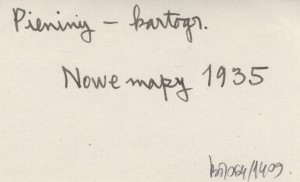 Pieniny – kartogr.
Nowe mapy 1935